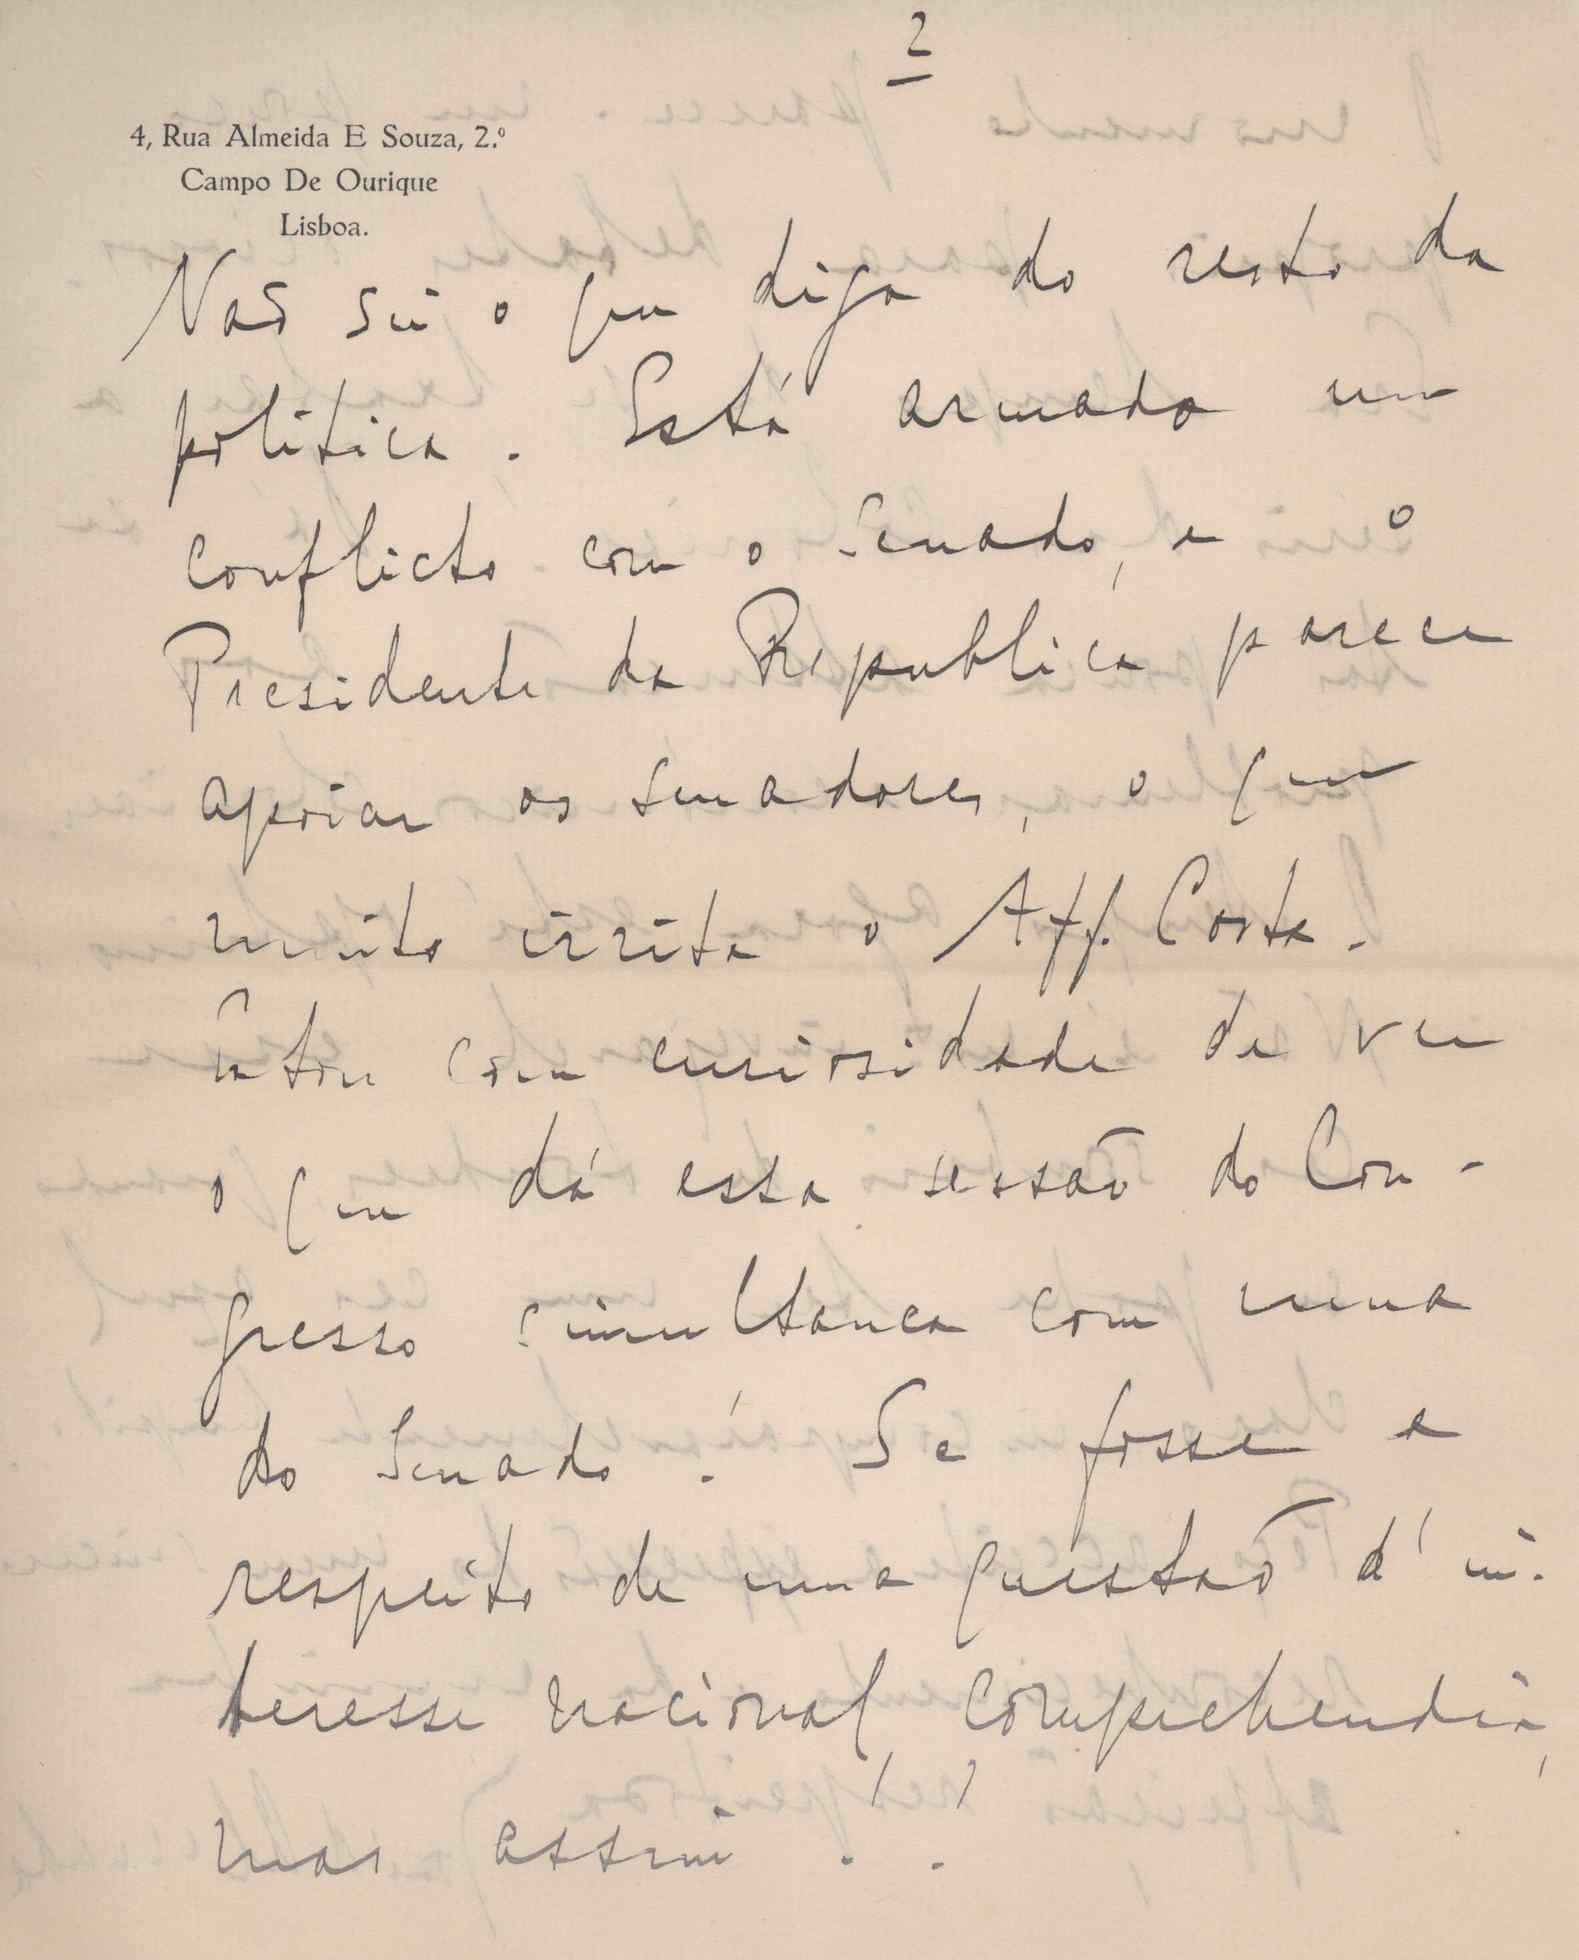 2
4, Rua Almeida E Souza, 2.º
Campo De Ourique
Lisboa.
Não sei o que diga do resto da
politica. Está armado um
conflicto com o Senado, e o
Presidente da Republica parece
apoiar os senadores, o que
muito irrita o Aff. Costa.
Estou com curiosidade de ver
o que dá essa sessão do Con-
gresso simultanea com uma
do Senado! Se fosse a
respeito de uma questão d'in-
teresse nacional, comprehendia,
mas assim!!